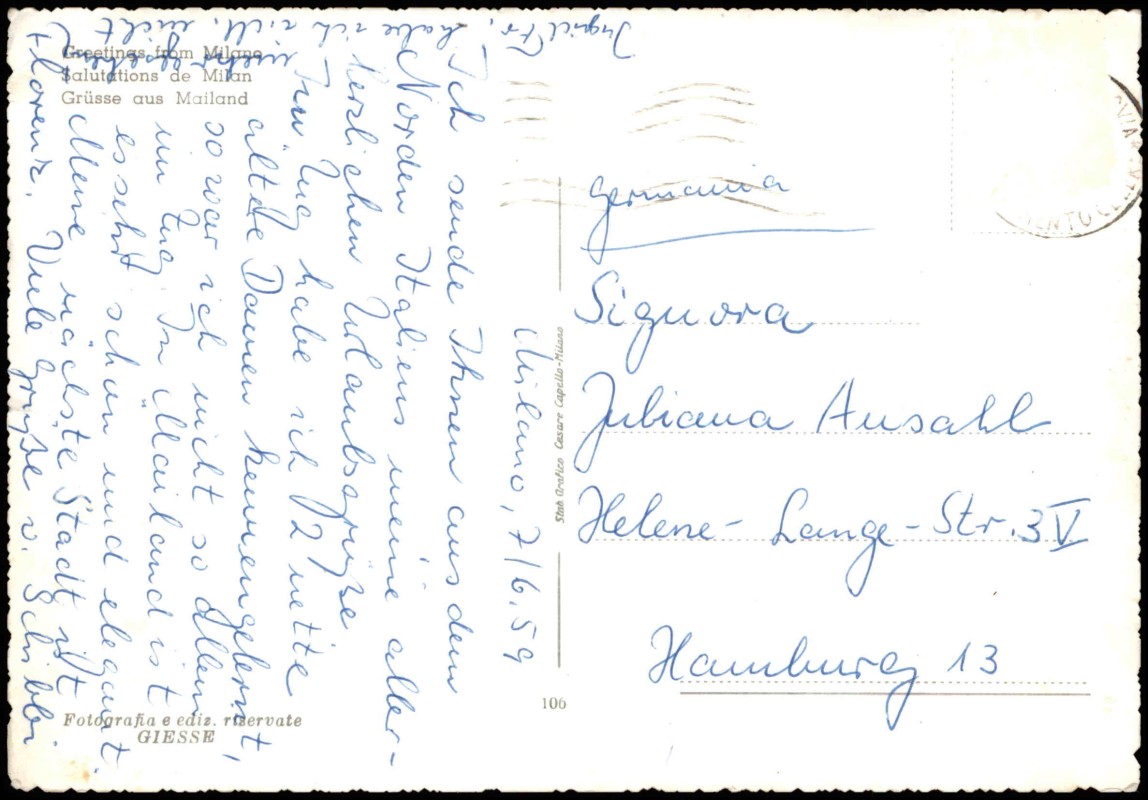 Greetings from Milano
Salutations de Milan
Grüsse aus Mailand
Milano, 7/6.59
Ich sende Ihnen aus dem
Norden Italiens meine aller-
herzlichen Urlaubsgrüße
Im Zug habe ich 2 nette
ältde Damen kennengelernt,
so war ich nicht so allein
im Zug. In Mailand ist
es sehr schön und elegant.
Meine nächste Stadt ist
Florenz. Viele Grüße v. Schibbi
habe ich
nicht
Germania
Signora
Juliana Ansahl
Helene-Lange-Str. 3 V
Hamburg 13
Stab Grafico Cesare Capello-Milano
106
Fotografia e ediz. riservate
GIESSE